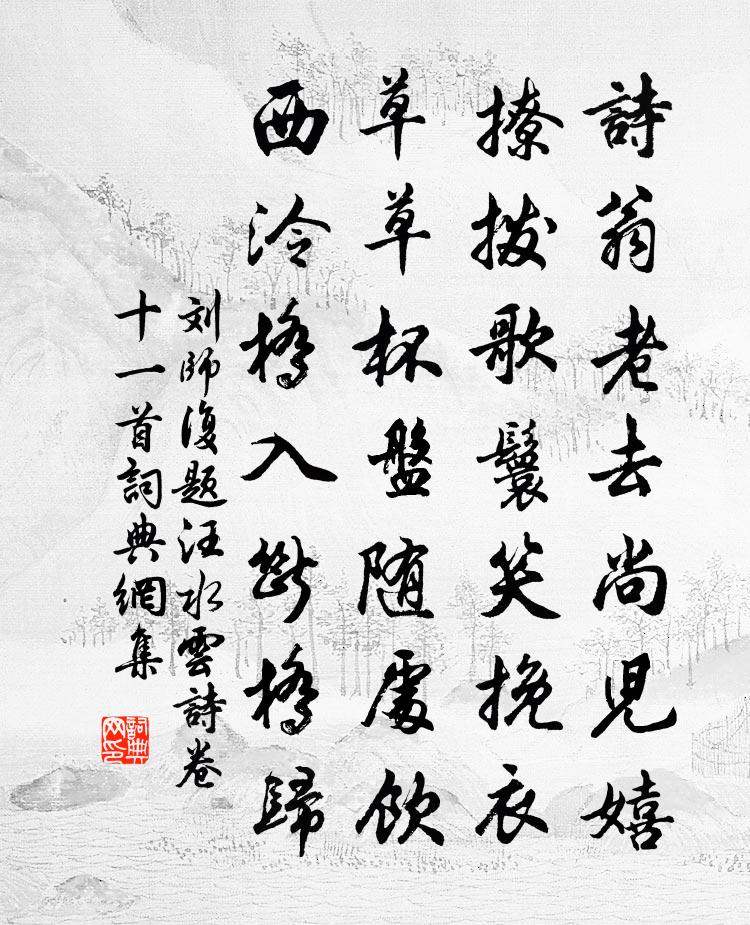 詩翁老去尚児嬉
撩撥歌鬟笑挽衣
草草杯盤随處飲
西泠橋入斷橋歸
刘師復題汪水雲詩卷
十一首詞典網集
詞典
网印